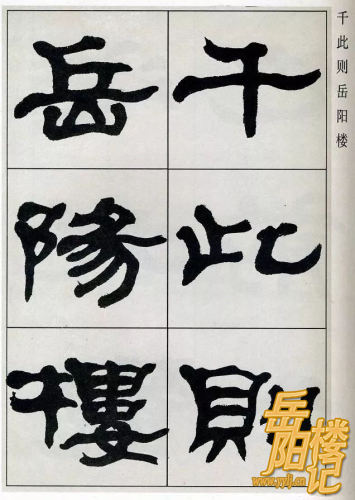 千此则岳阳楼
千此則
岳陽樓
岳阳楼记
www.yylj.cn